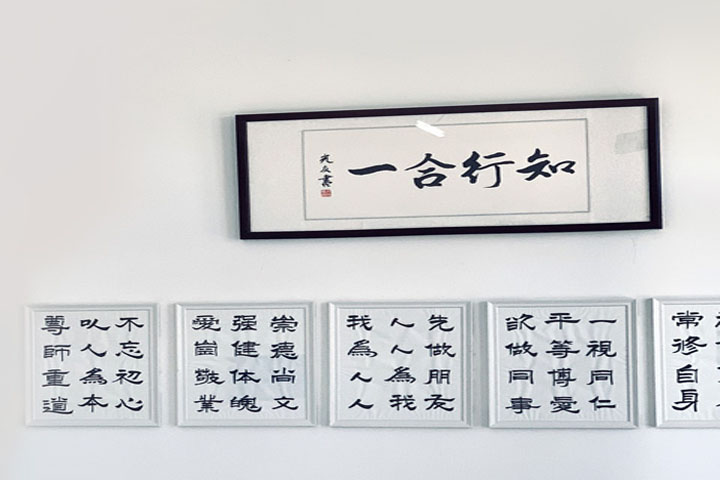 知行合一
友書
常修自身
一視同仁
平等博愛
欲做同事
先做朋友
人人為我
我為人人
崇德尚文
强健体魄
愛崗敬業
不忘初心
以人為本
尊師重道